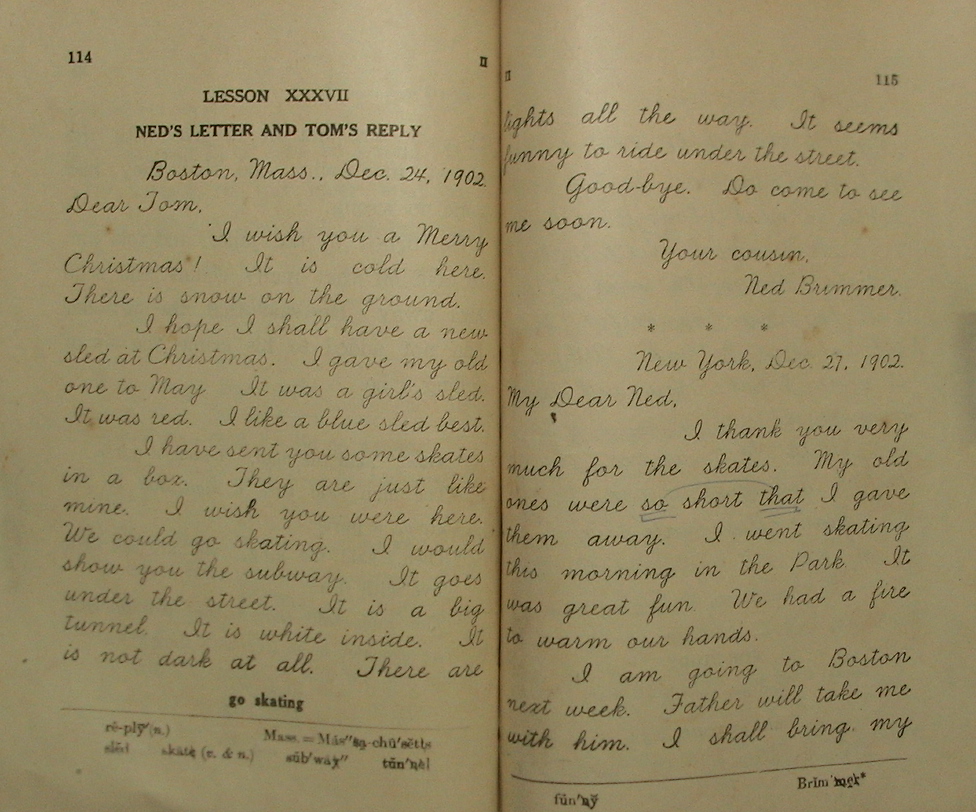 114
II
LESSON XXXVII
NED'S LETTER AND TOM'S REPLY
Boston, Mass., Dec. 24, 1902.
Dear Tom,
I wish you a Merry
Christmas! It is cold here.
There is snow on the ground.
I hope I shall have a new
sled at Christmas. I gave my old
one to May It was a girl's sled.
It was red. I like a blue sled best.
I have sent you some skates
in a box. They are just like
mine. I wish you were here.
We could go skating. I would
show you the subway. It goes
under the street. It is a big
tunnel. It is white inside. It
is not dark at all. There are
go skating
rē-plȳ′(n.) Mass. = Măs″sa-chū′sĕtts
slĕd skāte (v. & n.) sŭb′wāy″ tŭn′nĕl
II
115
lights all the way. It seems
funny to ride under the street.
Good-bye. Do come to see
me soon.
Your cousin,
Ned Brimmer.
* * *
New York, Dec. 27, 1902.
My Dear Ned,
I thank you very
much for the skates. My old
ones were so short that I gave
them away. I went skating
this morning in the Park It
was great fun. We had a fire
to warm our hands.
I am going to Boston
next week. Father will take me
with him. I shall bring my
fŭn′nў Brĭm′mer*